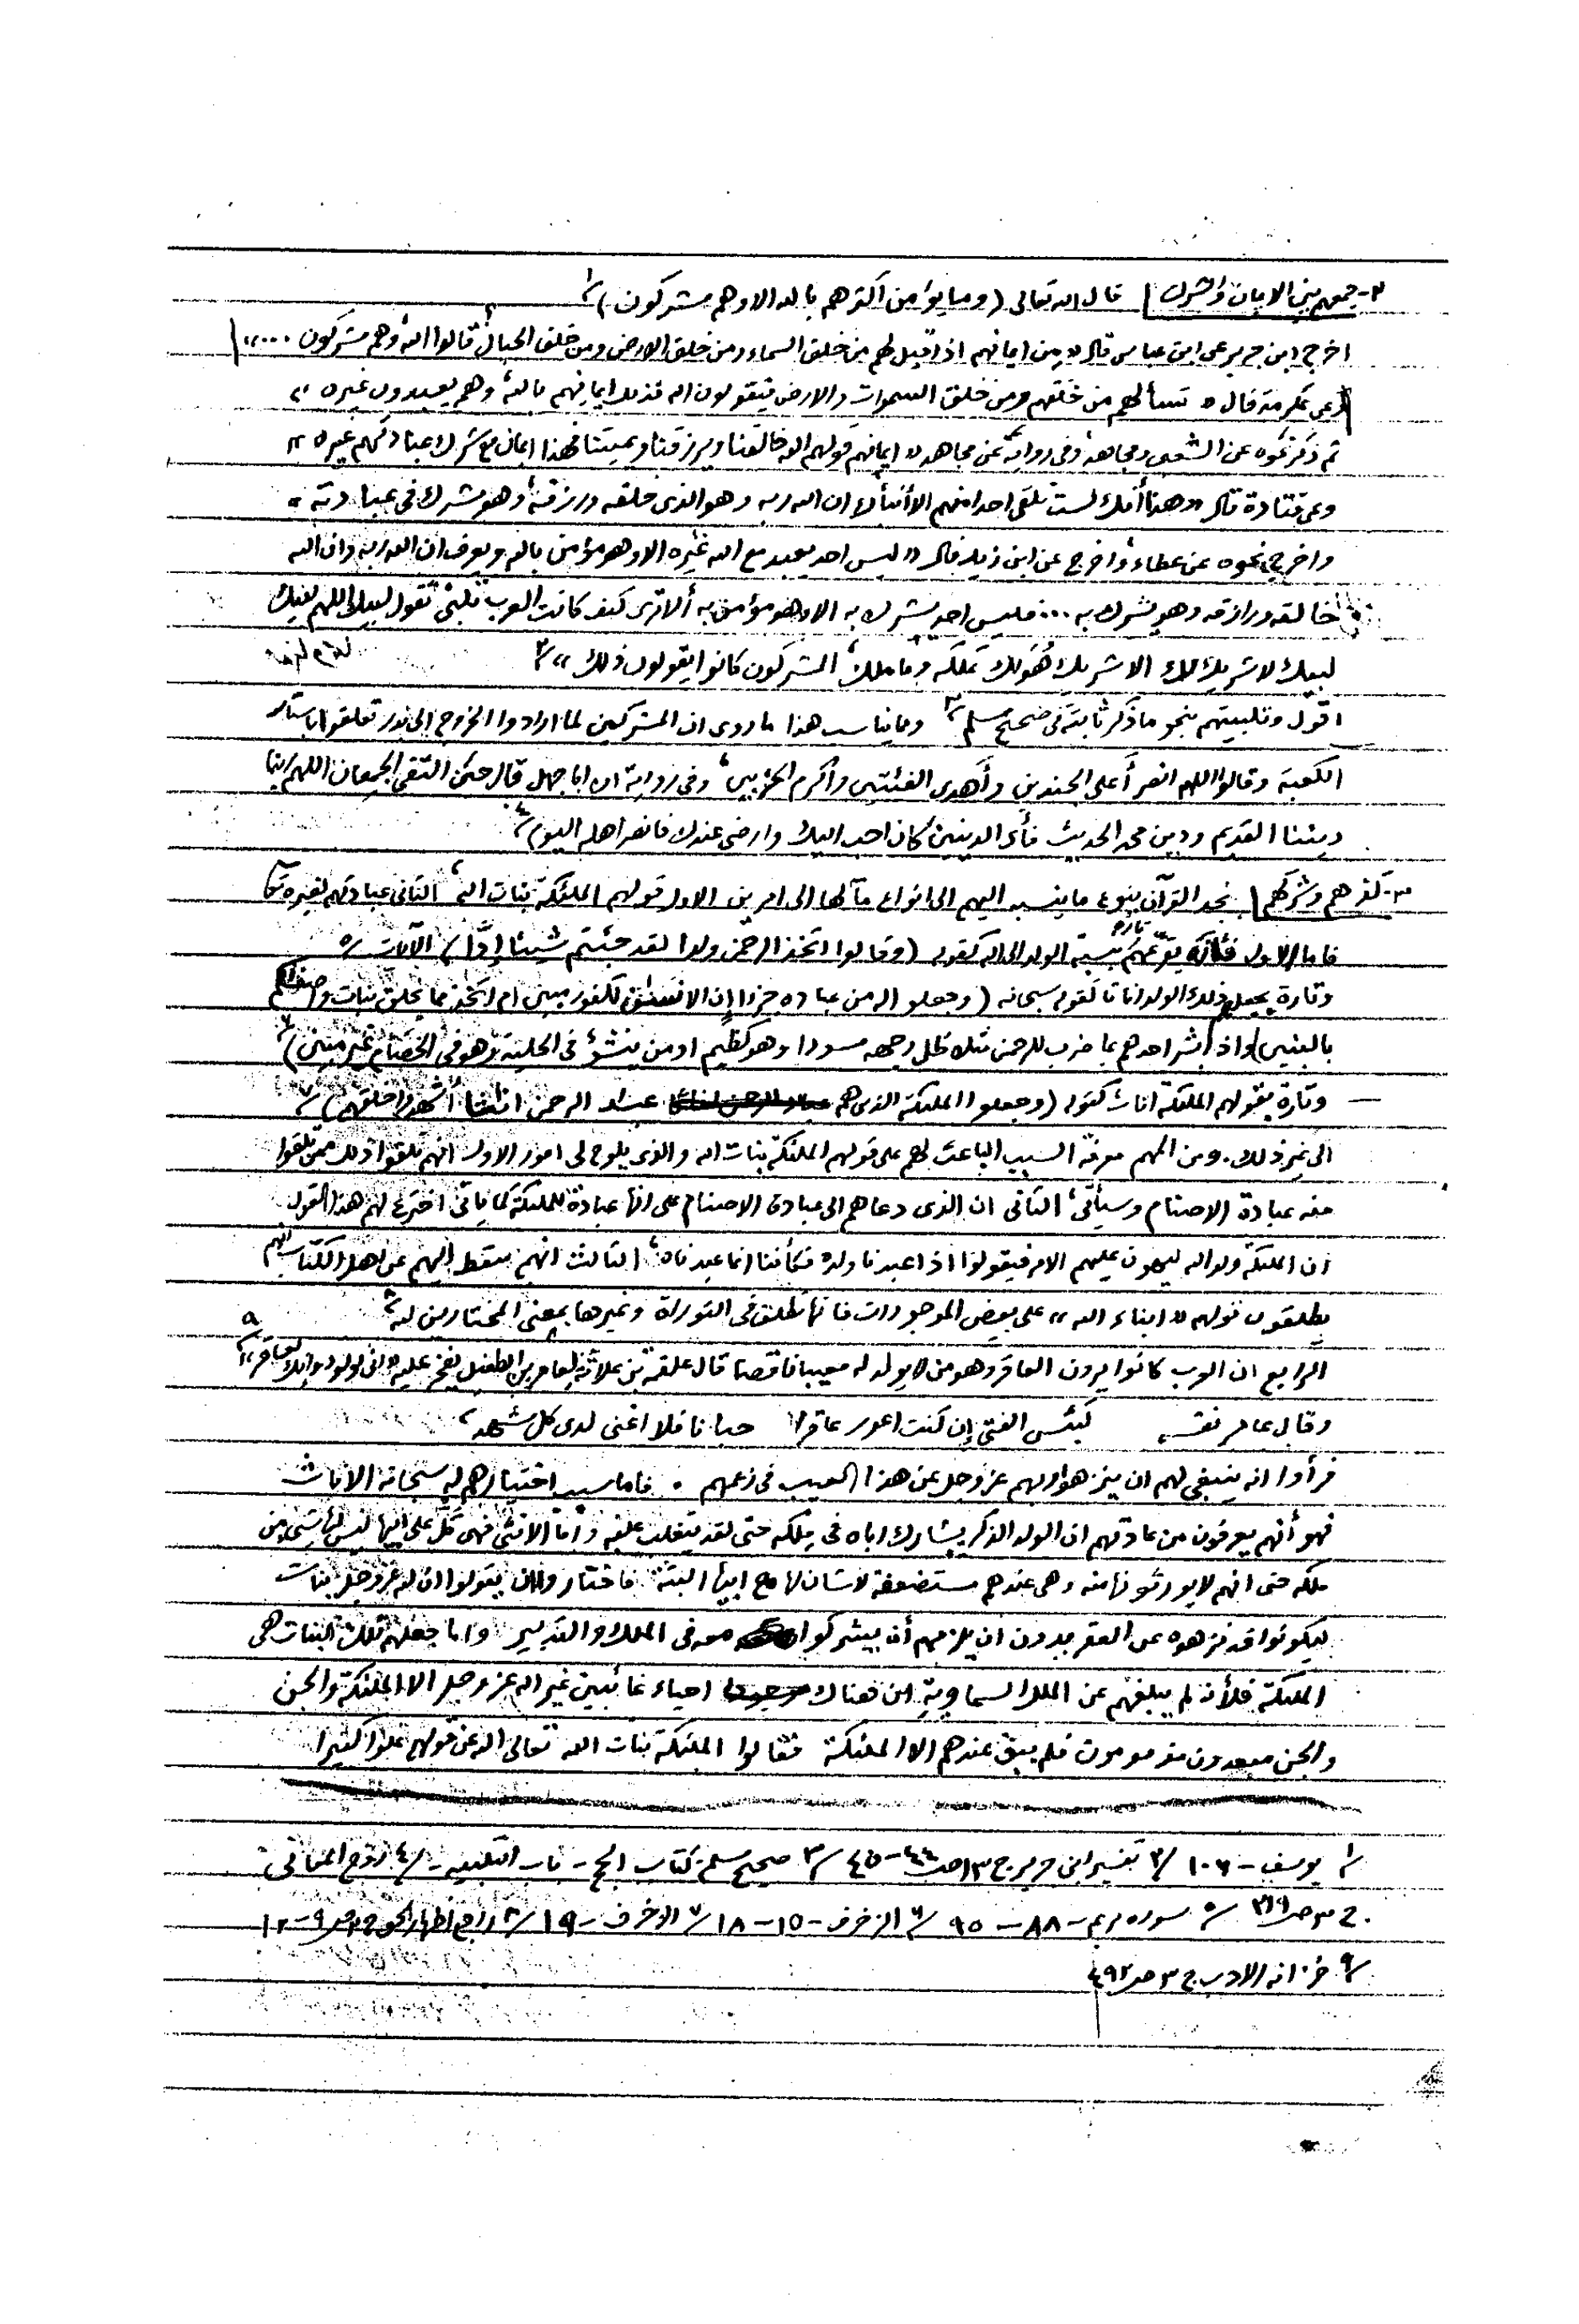 ٢- جمعهم بين الايمان والشرك | قال الله تعالى (وما يؤمن اكثرهم بالله الا وهم مشركون) ١/
اخرج ابن جرير عن ابن عباس قال «من ايمانهم اذا قيل لهم من خلق السماء ومن خلق الارض ومن خلق الجبال قالوا الله وهم مشركون ....»
وعن عكرمة قال « تسألهم من خلقهم ومن خلق السموات والارض فيقولون الله فذلك ايمانهم بالله وهم يعبدون غيره »
ثم ذكر نحوه عن الشعبي ومجاهد وفي رواية عن مجاهد « ايمانهم قولهم الله خالقنا ويرزقنا ويميتنا فهذا ايمان مع شرك عبادتهم غيره »
وعن قتادة قال « هذا أنك لست تلقى احدا منهم الا أنبأك ان الله ربه وهو الذي خلقه ورزقه وهو مشرك في عبادته »
واخرج نحوه عن عطاء واخرج عن ابن زيد قال « ليس احد يعبد مع الله غيره الا وهو مؤمن بالله ويعرف ان الله ربه وان الله
خالقه ورازقه وهو يشرك به ... فليس احد يشرك به الا وهو مؤمن به ألا ترى كيف كانت العرب تلبي تقول لبيك اللهم لبيك
لبيك لا شريك لك الا شريك هُوَ لك تملكه وما ملك المشركون كانوا يقولون ذلك » ٢/
اقول وتلبيتهم بنحو ما ذكر ثابتة في صحيح مسلم ٣/ ومما يناسب هذا ما روى ان المشركين لما ارادوا الخروج الى بدر تعلقوا باستار
الكعبة وقالوا اللهم انصر أعلى الجندين وأهدى الفئتين وأكرم الحزبين، وفي رواية ان ابا جهل قال حين التقى الجمعان اللهم ربنا
ديننا القديم ودين محمد الحديث فأي الدينين كان احب اليك وارضى عندك فانصر اهله اليوم ٤/
٣- كفرهم وشركهم | نجد القرآن ينوع ما ينسبه اليهم الى انواع مآلها الى امرين الاول قولهم الملئكة بنات الله، الثاني عبادتهم لغيره تعالى
فاما الاول فتارة يقرعهم بنسبة الولد الى الله كقوله (وقالوا اتخذ الرحمن ولدا لقد جئتم شيئا إدًّا) الآيات ٥/
وتارة بجعل ذلك الولد اناثا كقوله سبحانه (وجعلوا له من عباده جزءا إن الانسان لكفور مبين ام اتخذ مما يخلق بنات وأصفاكم
بالبنين واذا بشر احدهم بما ضرب للرحمن مثلا ظل وجهه مسودا وهو كظيم او من ينشؤ في الحلية وهو في الخصام غير مبين) ٦/
وتارة بقولهم الملئكة اناث كقوله (وجعلوا الملئكة الذين هم عباد الرحمن اناثا أشهدوا خلقهم) ٧/
الى غير ذلك. ومن المهم معرفة السبب الباعث لهم على قولهم الملئكة بنات الله والذي يلوح لي امور الاول انهم تلقوا ذلك ممن تلقوا
منه عبادة الاصنام وسيأتي، الثاني ان الذي دعاهم الى عبادة الاصنام على انها عبادة للملئكة كما يأتي اخترع لهم هذا القول
ان الملئكة ولد الله ليهون عليهم الامر فيقولوا اذا عبدنا ولده فكأننا انما عبدناه، الثالث انهم سقط اليهم عن اهل الكتاب انهم
يطلقون قولهم « ابناء الله » على بعض الموجودات فانها تطلق في التوراة وغيرها بمعنى المختارين له ٨/
الرابع ان العرب كانوا يرون العاقر وهو من لا يولد له معيبا ناقصا قال علقمة بن علاثة لعامر بن الطفيل يفخر عليه « اني ولود وانك لعاقر » ٩/
وقال عامر نفسه لبئس الفتى إن كنت اعور عاقرا جبانا فلا اغنى لدى كل مشهد،
فرأوا انه ينبغي لهم ان ينزهوا ربهم عز وجل عن هذا العيب في زعمهم . فاما سبب اختيارهم له سبحانه الاناث
فهو أنهم يعرفون من عادتهم ان الولد الذكر يشارك اباه في ملكه حتى لقد يتغلب عليه واما الانثى فهي كل على ابيها ليس لها شيء من
ملكه حتى انهم لا يورثونها منه وهي عندهم مستضعفة لا شان لها مع ابيها البتة. فاختاروا ان يقولوا ان له عز وجل بنات
ليكونوا قد نزهوه عن العقر بدون ان يلزمهم أن يشركوا معه في الملك والتدبير واما جعلهم تلك البنات هي
الملئكة فلأنه لم يبلغهم عن الملل السماوية ان هناك احياء غائبين غير الله عز وجل الا الملئكة والجن
والجن مبعدون مذمومون فلم يبق عندهم الا الملئكة فقالوا الملئكة بنات الله تعالى الله عن قولهم علوا كبيرا
١/ يوسف - ١٠٦ ٢/ تفسير ابن جرير ج ١٣ ص ٤٤-٤٥ ٣/ صحيح مسلم كتاب الحج - باب التلبية - ٤/ روح المعاني
ج ٣ ص ٢١٩ ٥/ سورة مريم - ٨٨ - ٩٥ ٦/ الزخرف - ١٥ - ١٨ ٧/ الزخرف - ١٩ ٨/ راجع اظهار الحق
٩/ خزانة الادب ج ٣ ص ٤٩٢